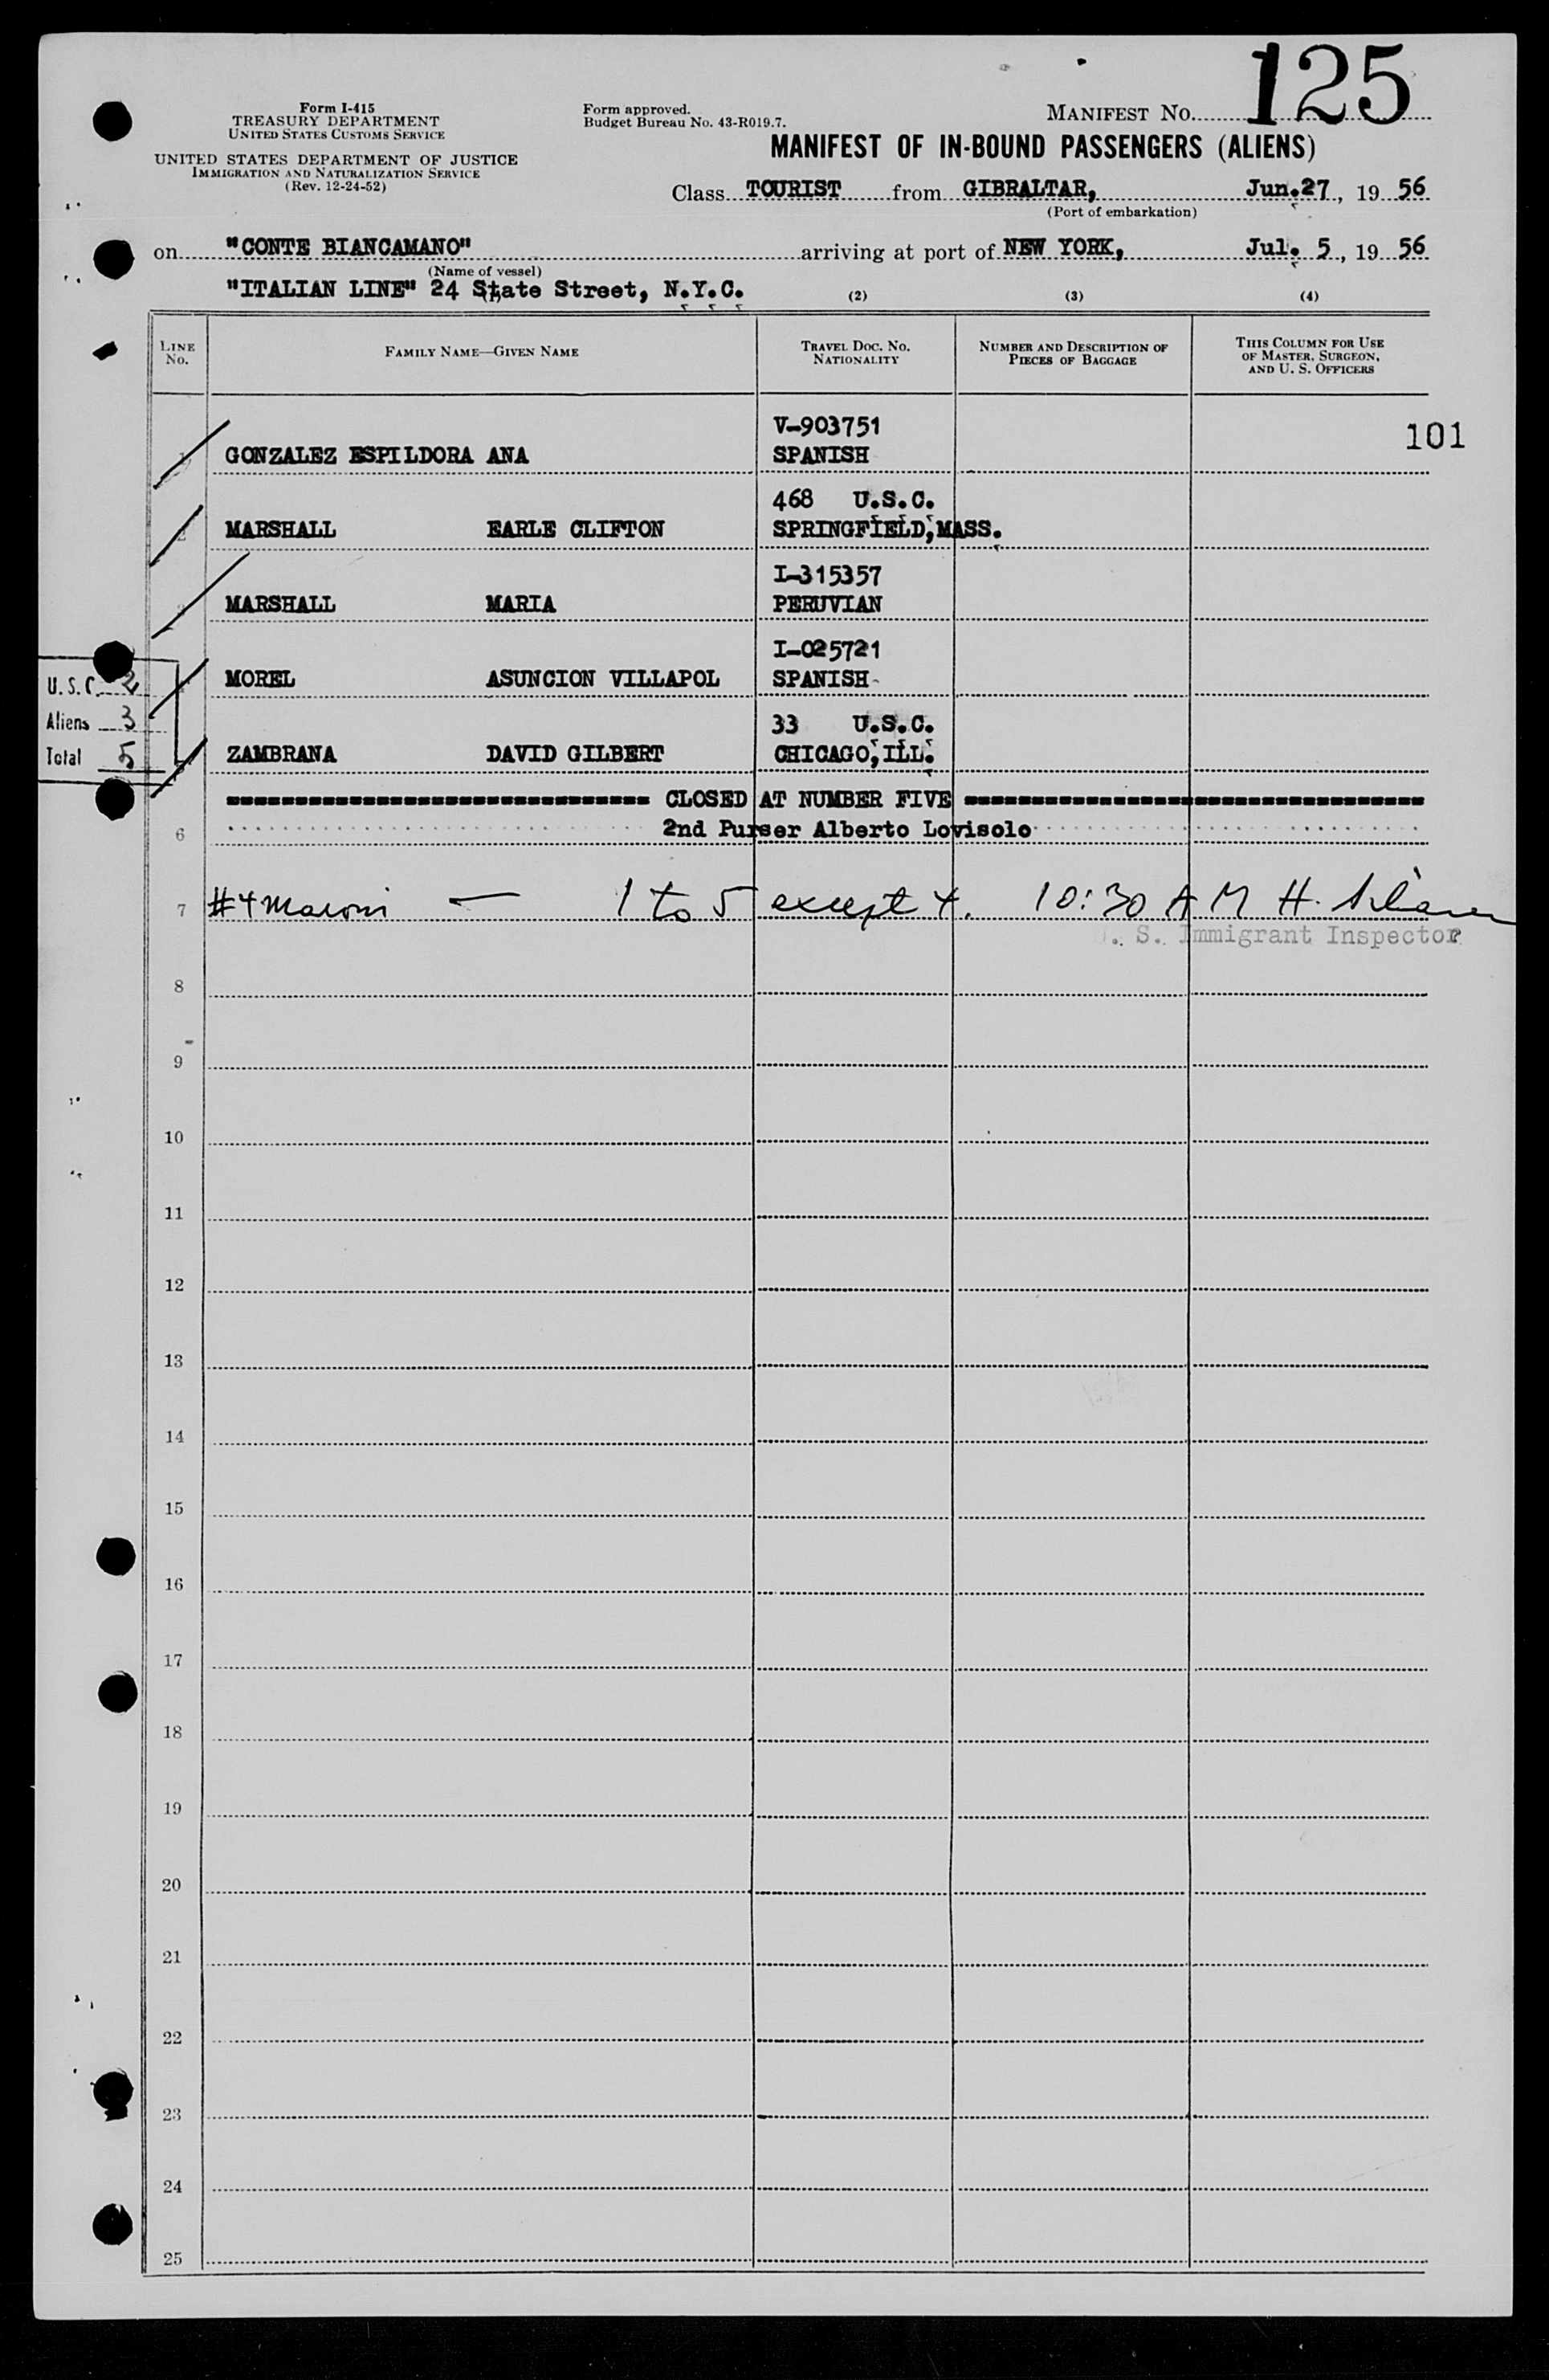 125
Form I-415
TREASURY DEPARTMENT
UNITED STATES CUSTOMS SERVICE
UNITED STATES DEPARTMENT OF JUSTICE
IMMIGRATION AND NATURALIZATION SERVICE
(Rev. 12-24-52)
Form approved.
Budget Bureau No. 43-R019.7.
MANIFEST NO.
MANIFEST OF IN-BOUND PASSENGERS (ALIENS)
Class TOURIST from GIBRALTAR, Jun.27, 19 56
(Port of embarkation)
on "CONTE BIANCAMANO" arriving at port of NEW YORK, Jul. 5, 19 56
(Name of vessel)
"ITALIAN LINE" 24 State Street, N.Y.C. (2) (3) (4)
LINE NO. FAMILY NAME—GIVEN NAME TRAVEL DOC. NO. NATIONALITY NUMBER AND DESCRIPTION OF PIECES OF BAGGAGE THIS COLUMN FOR USE OF MASTER, SURGEON, AND U. S. OFFICERS
V-903751
101
GONZALEZ ESPILDORA ANA SPANISH
468 U.S.C.
MARSHALL EARLE CLIFTON SPRINGFIELD, MASS.
I-315357
MARSHALL MARIA PERUVIAN
I-025721
MOREL ASUNCION VILLAPOL SPANISH
33 U.S.C.
ZAMBRANA DAVID GILBERT CHICAGO, ILL.
U.S.C. 2
Aliens 3
Total 5
CLOSED AT NUMBER FIVE
6 2nd Purser Alberto Lovisolo
7 #4 — 1 to 5 except 4. 10:30 AM H.
. S. Immigrant Inspector
8
9
10
11
12
13
14
15
16
17
18
19
20
21
22
23
24
25